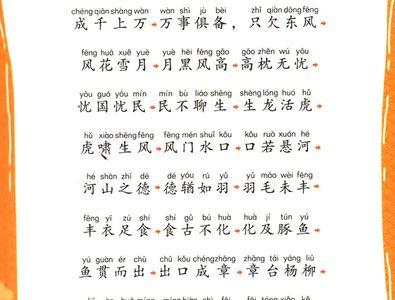 chéng qiān shàng wàn wàn shì jù bèi zhǐ qiàn dōng fēng
成千上万→万事俱备，只欠东风→
fēng huā xuě yuè yuè hēi fēng gāo gāo zhěn wú yōu
风花雪月→月黑风高→高枕无忧→
yōu guó yōu mín mín bù liáo shēng shēng lóng huó hǔ
忧国忧民→民不聊生→生龙活虎→
hǔ xiào shēng fēng fēng mén shuǐ kǒu kǒu ruò xuán hé
虎啸生风→风门水口→口若悬河→
hé shān zhī dé dé yóu rú yǔ yǔ máo wèi fēng
河山之德→德犹如羽→羽毛未丰→
fēng yī zú shí shí gǔ bú huà huà jí tún yú
丰衣足食→食古不化→化及豚鱼→
yú guàn ér chū chū kǒu chéng zhāng zhāng tái yáng liǔ
鱼贯而出→出口成章→章台杨柳→